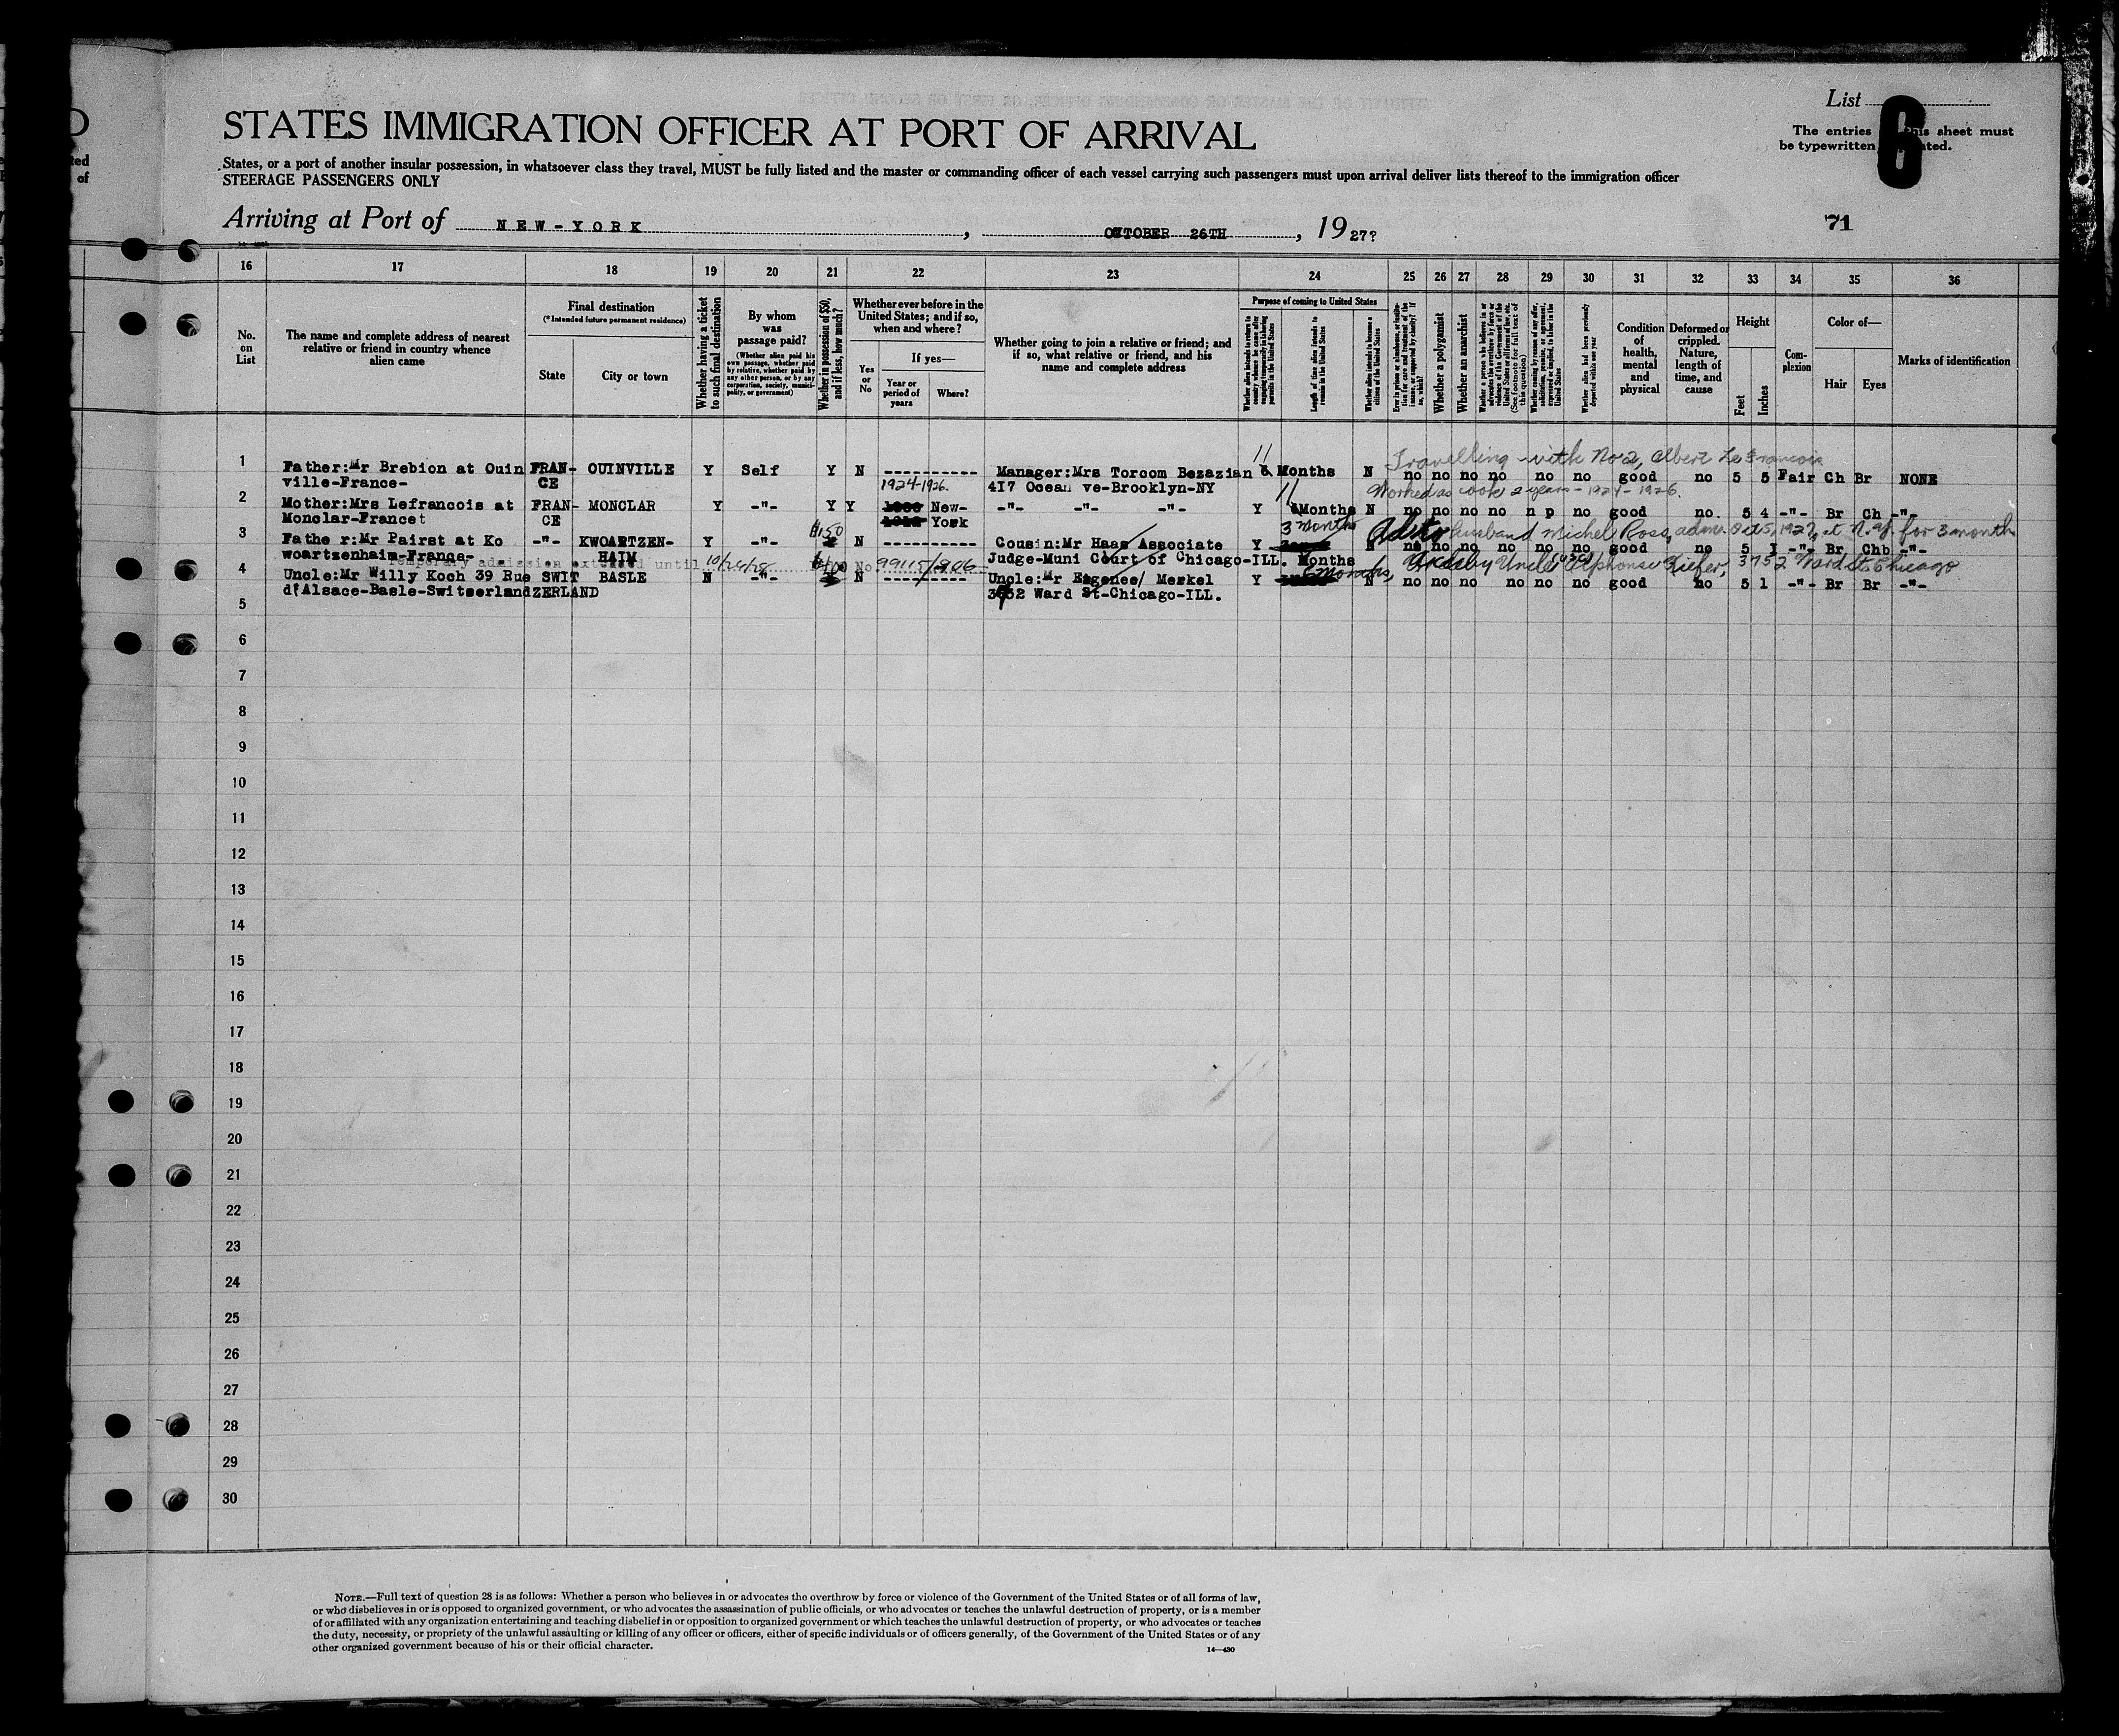 List 6
The entries this sheet must
be typewritten
STATES IMMIGRATION OFFICER AT PORT OF ARRIVAL
States, or a port of another insular possession, in whatsoever class they travel, MUST be fully listed and the master or commanding officer of each vessel carrying such passengers must upon arrival deliver lists thereof to the immigration officer
STEERAGE PASSENGERS ONLY
Arriving at Port of NEW-YORK, OCTOBER 26TH, 1927?
71
16 17 18 19 20 21 22 23 24 25 26 27 28 29 30 31 32 33 34 35 36
No. on List
The name and complete address of nearest relative or friend in country whence alien came
Final destination
(*Intended future permanent residence)
State
City or town
Whether having a ticket to such final destination
By whom was passage paid?
(Whether alien paid his own passage, whether paid by relative, whether paid by any other person, or by any corporation, society, municipality, or government)
Whether in possession of $50, and if less, how much?
Whether ever before in the United States; and if so, when and where?
Yes or No
If yes—
Year or period of years
Where?
Whether going to join a relative or friend; and if so, what relative or friend, and his name and complete address
Purpose of coming to United States
Length of time alien intends to remain in the United States
Whether alien intends to become a citizen of the United States
Whether a polygamist
Whether an anarchist
Whether alien had been previously deported within one year
Condition of health, mental and physical
Deformed or crippled. Nature, length of time, and cause
Height
Feet
Inches
Complexion
Color of—
Hair
Eyes
Marks of identification
Travelling with No 2, Albert Lefrancois
11
1 Father:Mr Brebion at Ouin FRAN- OUINVILLE Y Self Y N ----------- Manager:Mrs Toroom Bezazian 6 Months N no no no no no no good no 5 5 Fair Ch Br NONE
ville-France- CE 417 Ocean ve-Brooklyn-NY
1924-1926. 11 Worked as cook 2 years - 1924-1926.
2 Mother:Mrs Lefrancois at FRAN- MONCLAR Y -"- Y Y New- -"- -"- -"- Y Months N no no no no n p no good no. 5 4 -"- Br Ch -"-
Monclar-France CE York
$150 3 months husband Michel Ross, adm. Oct 5, 1927, at N.Y. for 3 month
3 Fathe r:Mr Pairst at Ko -"- KWOARTZEN- Y -"- N ----------- Cousin:Mr Haas Associate Y N no no no no no no good no 5 1 -"- Br Chb -"-
woartzenhaim-France- HAIM Judge-Muni Court of Chicago-ILL. Months
Temporary admission extended until 10/26/28 $400 No. 99115/806 Months, Uncle Alphonse Kiefer, 3752 Ward St. Chicago
4 Uncle:Mr Willy Koch 39 Rue SWIT BASLE N -"- N ----------- Uncle:Mr Eugenee Merkel Y N no no no no no no good no 5 1 -"- Br Br -"-
d'Alsace-Basle-Switserland ZERLAND 3752 Ward St-Chicago-ILL.
5
6
7
8
9
10
11
12
13
14
15
16
17
18
19
20
21
22
23
24
25
26
27
28
29
30
NOTE.—Full text of question 28 is as follows: Whether a person who believes in or advocates the overthrow by force or violence of the Government of the United States or of all forms of law,
or who disbelieves in or is opposed to organized government, or who advocates the assassination of public officials, or who advocates or teaches the unlawful destruction of property, or is a member
of or affiliated with any organization entertaining and teaching disbelief in or opposition to organized government or which teaches the unlawful destruction of property, or who advocates or teaches
the duty, necessity, or propriety of the unlawful assaulting or killing of any officer or officers, either of specific individuals or of officers generally, of the Government of the United States or of any
other organized government because of his or their official character.
14—430